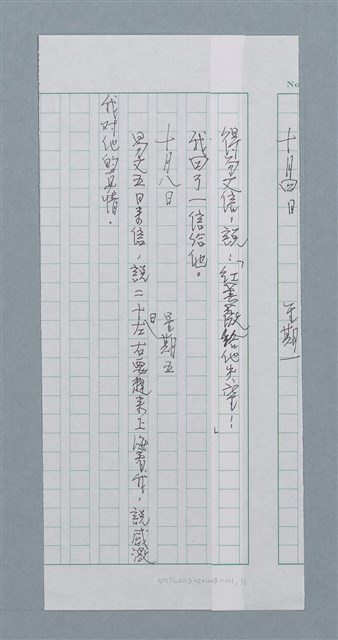 十月四日　星期一
得易文信，說：「紅薔薇給他失望！」
我回了一信給他。
十月八日　星期五
易文五日來信，說二十日左右要趕來上海看我，說感激
我對他的真情。
No